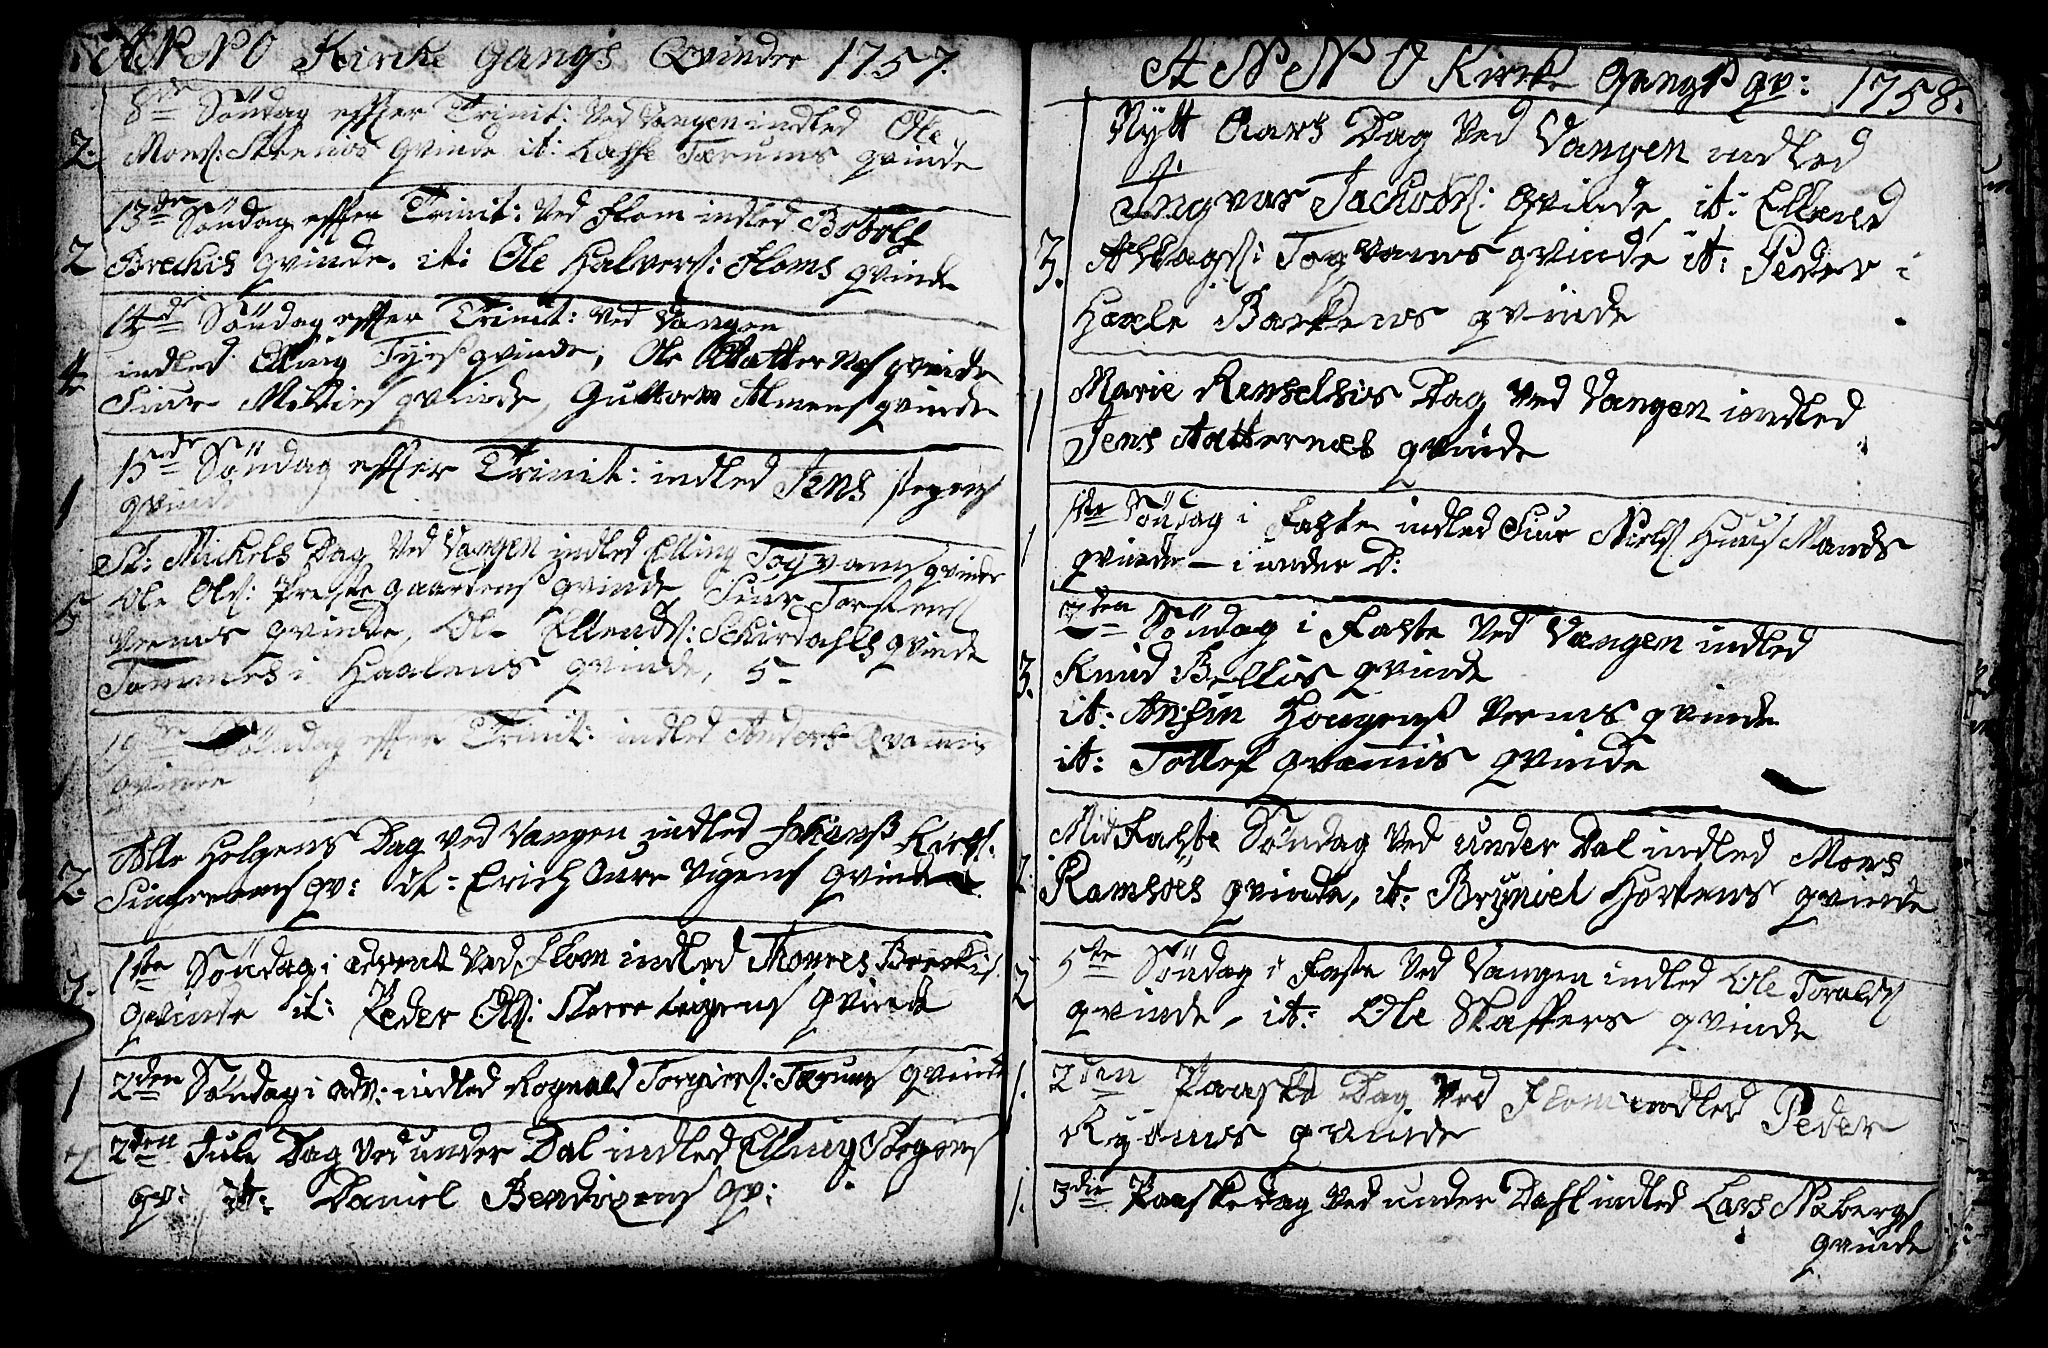 ANNO Kircke Gangs Qvinder 1757.
8de Søndag effter Trinit: Ved Vangen indled Ole
2. Mons: Steenes Qvinde it: Lasse Tærums qvinde
13de Søndag effter Trinit: Ved Flom indled Botolf
2 Brechis qvinde. it: Ole Halvers: Floms qvinde
14de Søndag effter Trinit: Ved Vangen
indled Elling Tyes qvinde, Ole Otternes qvinde
4 Siur qvinde, Guttorm Almens qvinde
15de Søndag effter Trinit: indled Jens stegens
1 qvinde
St: Mickels Dag Ved Vangen indled Elling Togvams qvinde
Ole Ols: Præste gaardens qvinde, Siur Torstens:
5 Veems qvinde, Ole Ellends: Schirdahls qvinde
Tommes i Haalens qvinde, 5-
19de Søndag effter Trinit: indled Anders Qvamis
1 qvinde
Alle Helgens Dag Ved Vangen indled Johans
2. qv: it: Erich Aure Vigens qvinde
1ste Søndag i advent Ved Flom indled Monres Breckis
2. qvinde it: Peder Ols: qvinde
1 2den Søndag i adv: indled Rognald Torgiers: Tærums qvinde
2 2den Jule Dag Ved under Dal indled Elling Stegens
qv: It: Daniel Bendixens qv:
ANNO Kirke Gangs qv: 1758.
Nytt Aars Dag Ved Vangen indled
Ingvar Jachobs: qvinde, it: Ellend
3. Aslags: Togvams qvinde it: Peder i
Haale Barkens qvinde
Marie Renselsis Dag Ved Vangen indled
1 Jens Aatternæs qvinde
1ste Søndag i Faste indled Siur Niels: Huus Mands
1 qvinde - i under D:
2den Søndag i Faste Ved Vangen indled
3. Knud Bellis qvinde
it: Ansin Hougens Veems qvinde
it: Tollef qvamis qvinde
Midfaste Søndag Ved under Dal indled Mons
2. Ramsøes qvinde, it: Bryniel Hovens qvinde
5te Søndag i Faste Ved Vangen indled Ole Toralds
2 qvinde, it: Ole Skaffers qvinde
1. 2den Paaske Dag Ved Flom indled Peder
Ryoms qvinde
1. 3die Paaske dag Ved under Dahl indled Lars Næbergs
qvinde